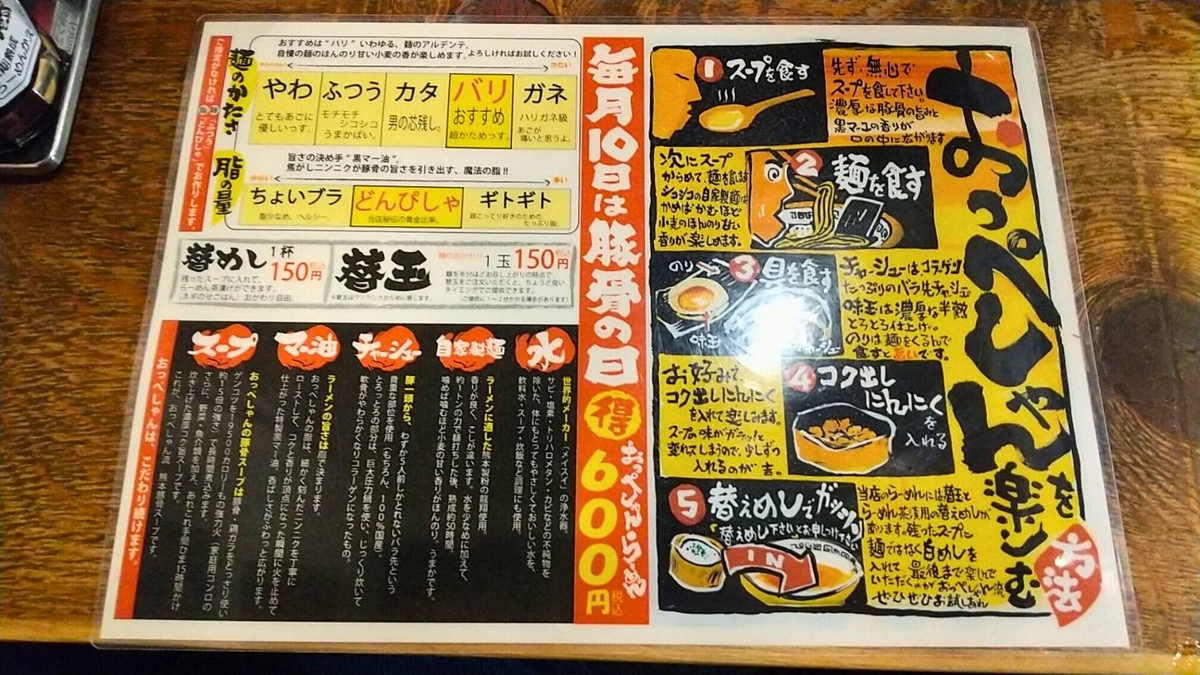 おすすめは“バリ”いわゆる、麺のアルデンテ。
自慢の麺のほんのり甘い小麦の香が楽しめます。よろしければお試しください！
ご指定がなければ
「ふつう」
「どんぴしゃ」でお作りします。
麺のかたさ
かたい
やわ
とてもあごに
優しいっす。
ふつう
モチモチ
シコシコ
うまかばい。
カタ
男の芯残し。
バリ
おすすめ
超かためっす。
ガネ
ハリガネ級
あごが
痛いと思うよ。
脂の量
旨さの決め手“黒マー油”。
焦がしニンニクが豚骨の旨さを引き出す、魔法の脂!!
多い
ちょいブラ
脂少なめ、ヘルシー。
どんぴしゃ
当店秘伝の黄金比率。
ギトギト
超こってり好きのための
たっぷり脂。
替めし
1杯
150円
税込
残ったスープに入れて、
らーめん茶漬けができます。
(ネギのせごはん)おかわり自由。
替玉
麺のおかわり
1玉150円
税込
麺を半分ほどお召し上がりの時点で
替玉をご注文いただくと、ちょうど良い
タイミングでご提供できます。
(ご提供に1〜2分かかる場合があります)
※替玉はワンランクかために感じます。
水
世界的メーカー「メイスイ」の浄水器。
サビ・塩素・トリハロメタン・カビなどの不純物を
除いた、体にもとってもやさしくておいしい水を、
飲料水・スープ・炊飯など調理にも使用。
自家製麺
ラーメンに適した熊本製粉の龍翔使用。
香りが良く、こしが違います。水を少なめに加えて、
約1トンの力で麺打ちした後、熟成約50時間。
噛めば噛むほど小麦の甘い香りがほんのり。うまかです。
チャーシュー
豚一頭から、わずか5人前しかとれないバラ先という
貴重な部位を使用(もちろん、100%国産)。
とろっとろの部分は、巨大圧力鍋を使い、じっくり炊いて
軟骨がやわらかくなりコラーゲンになったもの。
マー油
ラーメンの旨さは脂で決まります。
おっぺしゃんの脂は、細かく刻んだニンニクを丁寧に
ローストして、コクと香りが頂点になった瞬間に火を止めて
仕上がった特製黒マー油。香ばしさがふわっと広がります。
スープ
おっぺしゃんの豚骨スープは豚骨・鶏ガラをどっさり使い
ゲンコツを19500カロリーもの強力火(家庭用コンロの
約15倍の強さ)で長時間煮込みます。
さらに、野菜・魚介類を加え、あれこれ手間ひま15時間かけ
炊き上げた濃厚コク旨スープです。
これが、おっぺしゃん流 熊本豚骨スープです。
おっぺしゃんは、こだわり続けます。
毎月10日は豚骨の日
得
おっぺしゃんらーめん
600円
税込
おっぺしゃんを楽しむ
方法
1 スープを食す
先ず、無心で
スープを食して下さい。
濃厚な豚骨の旨みと
黒マー油の香りが
口の中に広がります
2 麺を食す
次にスープ
からめて、麺を食す
シコシコの自家製麺は
かめばかむほど
小麦のほんのり甘い
香りが楽しめます。
3 具を食す
のり
味玉
チャーシュー
チャーシューはコラーゲン
たっぷりのバラ先チャーシュー
味玉は濃厚な半熟
とろとろ仕上げ。
のりは麺をくるんで
食すと旨いです。
4 コク出し
にんにく
を入れる
お好みで、
コク出しにんにく
を入れて楽しみます。
スープの味がガラッと
変わってしまうので、少しずつ
入れるのが吉。
5 替えめしでガッツリ
「替えめし下さい」とお申しつけ下さい
IN
当店のらーめんには替玉と
らーめん茶漬用の替えめしが
あります。残ったスープに
麺ではなく白めしを
入れて最後まで楽しんで
いただくのがおっぺしゃん流
ぜひぜひお試しあれ